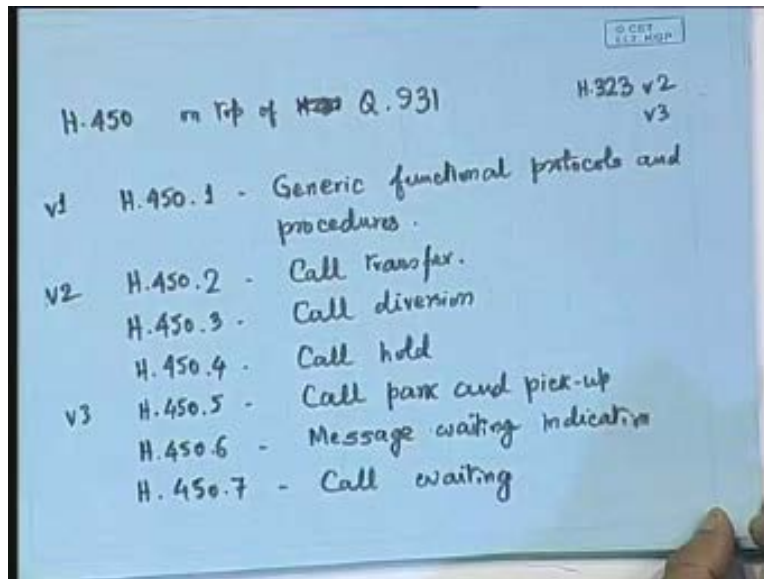 © CET
I.I.T. KGP
H.450 on top of Q.931
H.323 v2
v3
v1 H.450.1 - Generic functional protocols and
procedures.
v2 H.450.2 - Call Transfer.
H.450.3 - Call diversion
H.450.4 - Call hold
v3 H.450.5 - Call park and pick-up
H.450.6 - Message waiting indication
H.450.7 - Call waiting